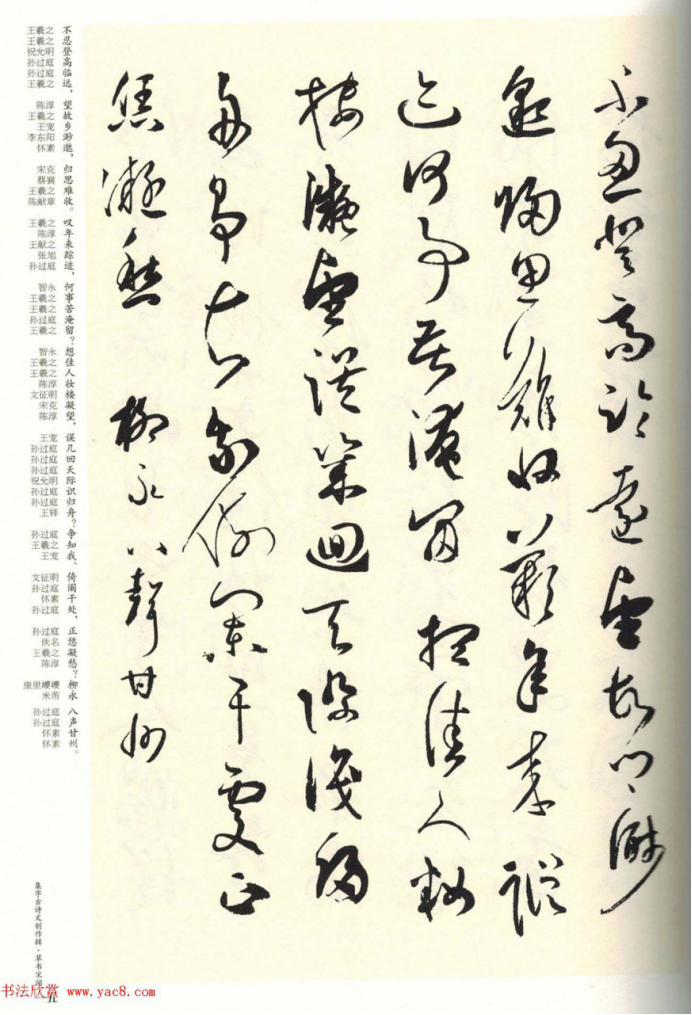 不忍登高臨遠望故鄉渺
邈歸思難收歎年來蹤
迹何事苦淹留想佳人妝
樓凝望誤幾回天際識歸
舟爭知我倚闌干處正
恁凝愁 柳永八聲甘州
不忍登高临远，望故乡渺邈，归思难收。叹年来踪迹，何事苦淹留？想佳人妆楼凝望，误几回天际识归舟？争知我、倚阑干处，正恁凝愁？柳永 八声甘州。
王羲之
王羲之
祝允明
孙过庭
孙过庭
王羲之
陈淳
王羲之
王宠
李东阳
怀素
宋克
蔡襄
王羲之
陈献章
王羲之
陈淳
王献之
张旭
孙过庭
智永
王羲之
王羲之
孙过庭
王羲之
智永
王羲之
王羲之
陈淳
文征明
宋克
陈淳
王宠
孙过庭
孙过庭
孙过庭
祝允明
孙过庭
孙过庭
王铎
孙过庭
王羲之
王宠
文征明
孙过庭
怀素
孙过庭
孙过庭
佚名
王羲之
陈淳
康里巎巎
米芾
孙过庭
孙过庭
怀素
怀素
集字古诗文创作辑·草书宋词
书法欣赏 www.yac8.com